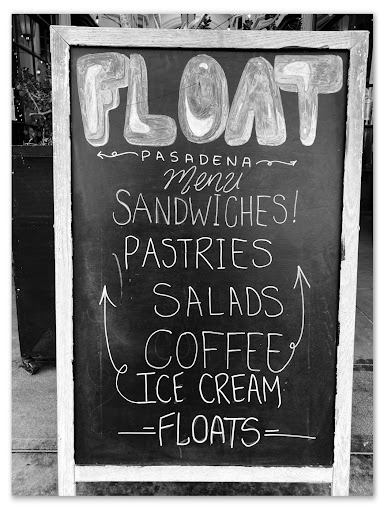 FLOAT
PASADENA
Menu
SANDWICHES!
PASTRIES
SALADS
COFFEE
ICE CREAM
=FLOATS=